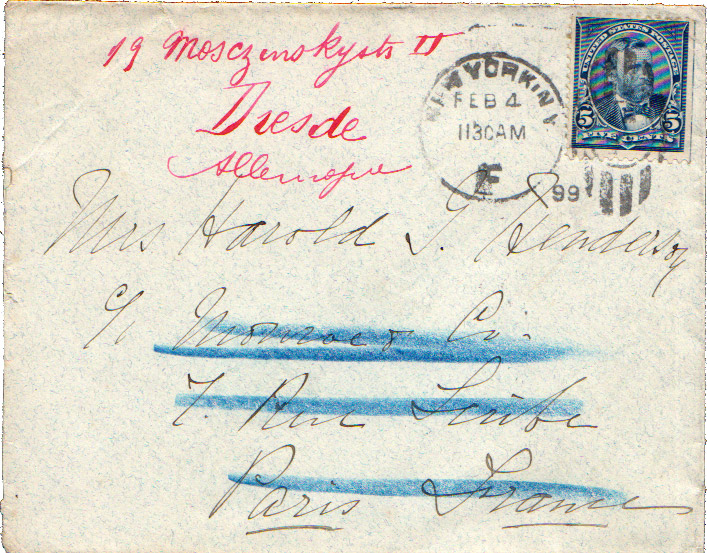 19 Mosczinskystr II
Dresde
Allemagne
NEW YORK, N.Y.
FEB 4
11 30 AM
F
99
UNITED STATES POSTAGE
5 5
FIVE CENTS
Mrs Harold G. Henderson
c/o Monroe & Co.
7 Rue Scribe
Paris France